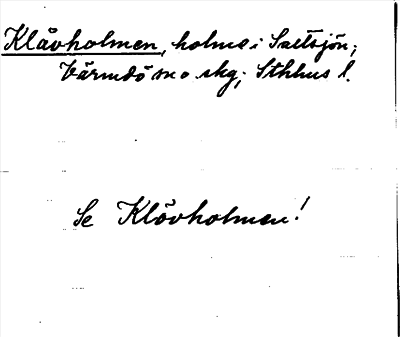 Klåvholmen, holme i Saltsjön;
Värmdö sn o skg; Sthlms l.
Se Klövholmen!